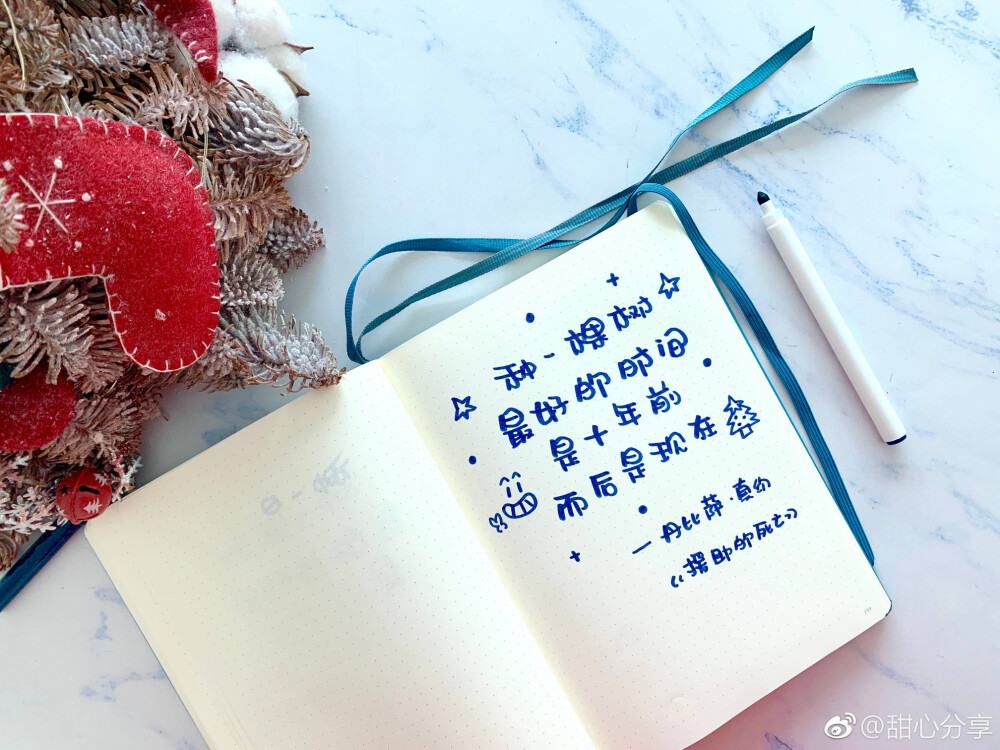 种一棵树
最好的时间
是十年前
而后是现在
一丹比萨·莫约
《援助的死亡》
@甜心分享